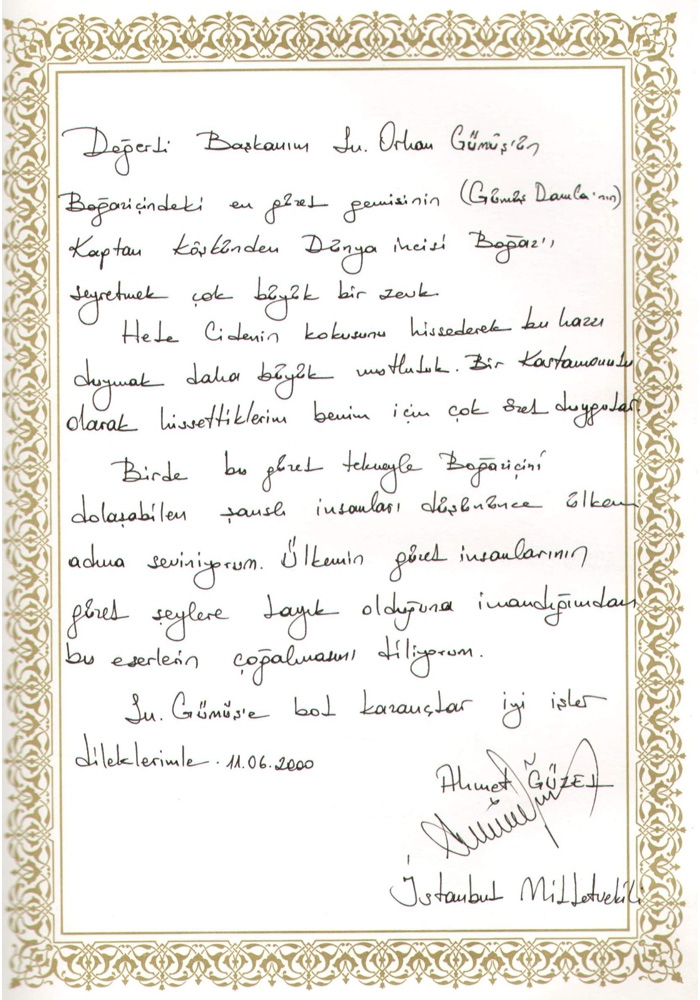 Değerli Başkanım Sn. Orhan Gümüş'ün
Boğaziçindeki en güzel gemisinin (Gümüş Damla'nın)
Kaptan köşkünden Dünya incisi Boğaz'ı
seyretmek çok büyük bir zevk.
Hele Cidenin kokusunu hissederek bu hazzı
duymak daha büyük mutluluk. Bir Kastamonulu
olarak hissettiklerim benim için çok özel duygular.
Birde bu güzel tekneyle Boğaziçini
dolaşabilen şanslı insanları düşününce ülkem
adına seviniyorum. Ülkemin güzel insanlarının
güzel şeylere layık olduğuna inandığımdan
bu eserlerin çoğalmasını diliyorum.
Sn. Gümüş'e bol kazançlar iyi işler
dileklerimle. 11.06.2000
Ahmet GÜZEL
İstanbul Milletvekili